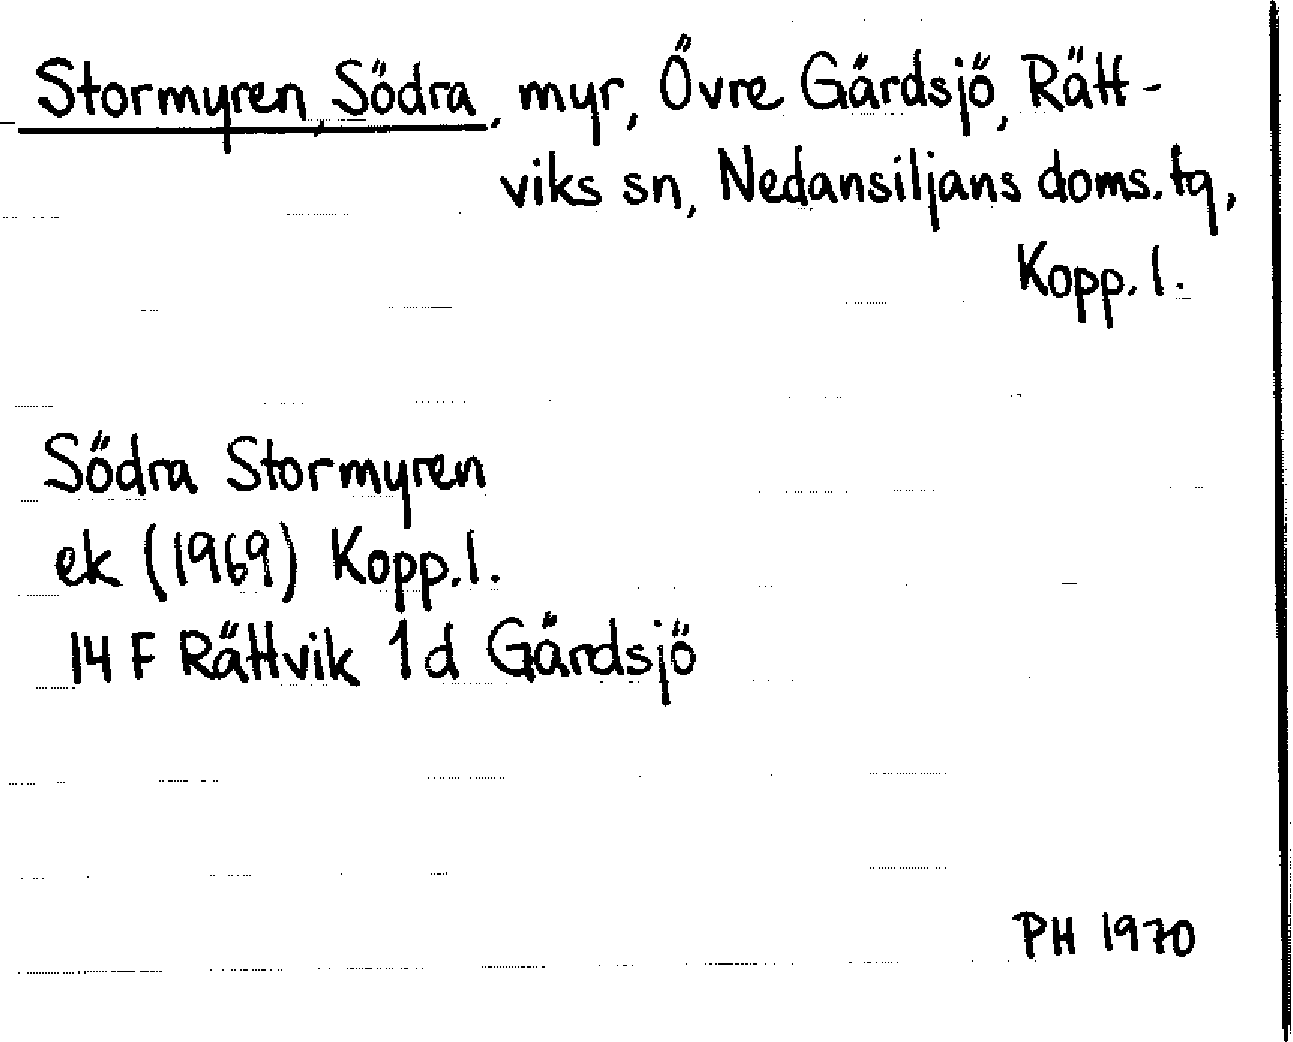 Stormyren, Södra, myr, Övre Gärdsjö, Rätt-
viks sn, Nedansiljans doms.tg,
Kopp.l.
Södra Stormyren
ek (1969) Kopp.l.
14 F Rättvik 1d Gärdsjö
PH 1970